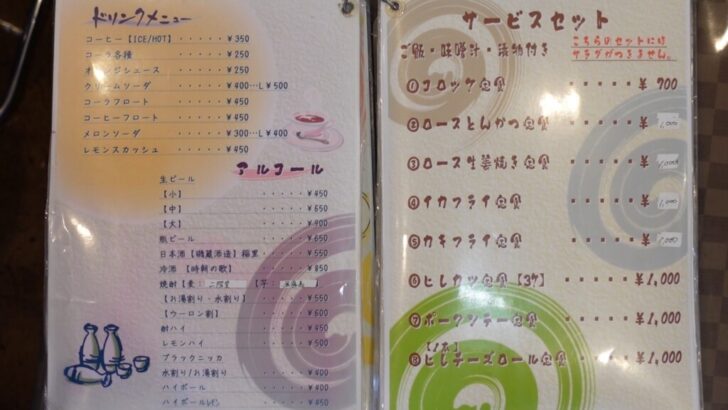 ドリンクメニュー
コーヒー【ICE/HOT】 ・・・・・ ¥350
コーラ各種 ・・・・・ ¥250
オレンジジュース ・・・・・ ¥250
クリームソーダ ・・・・・ ¥400…L ¥500
コーラフロート ・・・・・ ¥450
コーヒーフロート ・・・・・ ¥450
メロンソーダ ・・・・・ ¥300…L ¥400
レモンスカッシュ ・・・・・ ¥450
アルコール
生ビール
【小】 ・・・・・ ¥450
【中】 ・・・・・ ¥650
【大】 ・・・・・ ¥900
瓶ビール ・・・・・ ¥650
日本酒【磯蔵酒造】稲里 ・・・・・ ¥550
冷酒 ・・・・・ ¥850
焼酎【麦: 二階堂 【芋:
【お湯割り・水割り】 ・・・・・ ¥550
【ウーロン割】 ・・・・・ ¥600
酎ハイ ・・・・・ ¥450
レモンハイ ・・・・・ ¥500
ブラックニッカ
水割り/お湯割り ・・・・・ ¥400
ハイボール ・・・・・ ¥400
ハイボール ・・・・・ ¥450
サービスセット
ご飯・味噌汁・漬物付き
こちらのセットには
サラダがつきません。
①コロッケ定食 ・・・・・ ¥ 700
②ロースとんかつ定食 ・・・・・ ¥ 1,000
③ロース生姜焼き定食 ・・・・・ ¥ 1,000
④イカフライ定食 ・・・・・ ¥ 1,000
⑤カキフライ定食 ・・・・・ ¥ 1,000
⑥ヒレカツ定食【3ケ】 ・・・・・ ¥1,000
⑦ポークソテー定食 ・・・・・ ¥1,000
【1本】
⑧ヒレチーズロール定食 ・・・・・ ¥1,000